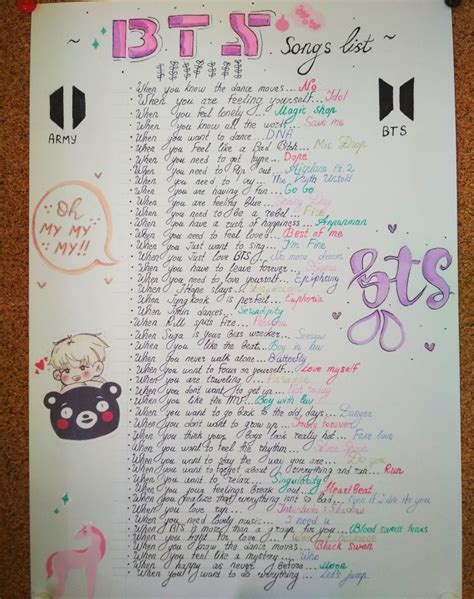 ~ BTS Songs list ~
ARMY
BTS
When you know the dance moves... No
When you are feeling yourself... Idol
When you feel lonely... Magic Shop
When you know all the words... Save me
When you want to dance... DNA
When you feel like a Bad Bhh... Mic Drop
When you need to get hype... Dope
When you need to Pop Out... Airplane Pt. 2
When you need to cry... The Truth Untold
When you are having fun... Go Go
When you are feeling blue... Spring Day
When you need to be a rebel... Fire
When you have a rush of happiness... Anpanman
When you need to feel loved... Best of me
When you Just want to sing... I'm Fine
When you Just love BTS... No more dream
When you have to leave forever... Stigma
When you need to love yourself... Epiphany
When J Hope slays...
When Jungkook is perfect... Euphoria
When Jimin dances... Serendipity
When RM spits fire... Persona
When Suga is your bias wrecker... Seesaw
When You like the best... Boy in luv
When you never walk alone... Butterfly
When you want to focus on yourself... Love myself
When you are traveling... Paradise
When you don't want to get up... Not today
When you like the MV... Boy with luv
When you want to go back to the old days... Danger
When you don't want to grow up... Young forever
When you think your boys look really hot... Fake love
When you want to feel the rhythm...
When you want to play the way you are...
When you want to forget about everything and run... Run
When you want to relax... Singularity
When you your feelings break out... HeartBeat
When you realize that everything isn't so bad... Even if I die it's you
When you love rain... Interlude: Shadow
When you need lovely music... I need u
When BTS is more than a group for you... Blood sweat tears
When you fight for love...
When you know the dance moves... Black Swan
When you feel like a mystery... Who
When happy as never before... Moon
When you want to do everything... Let's jump.
Oh
MY MY
MY!!
BTS